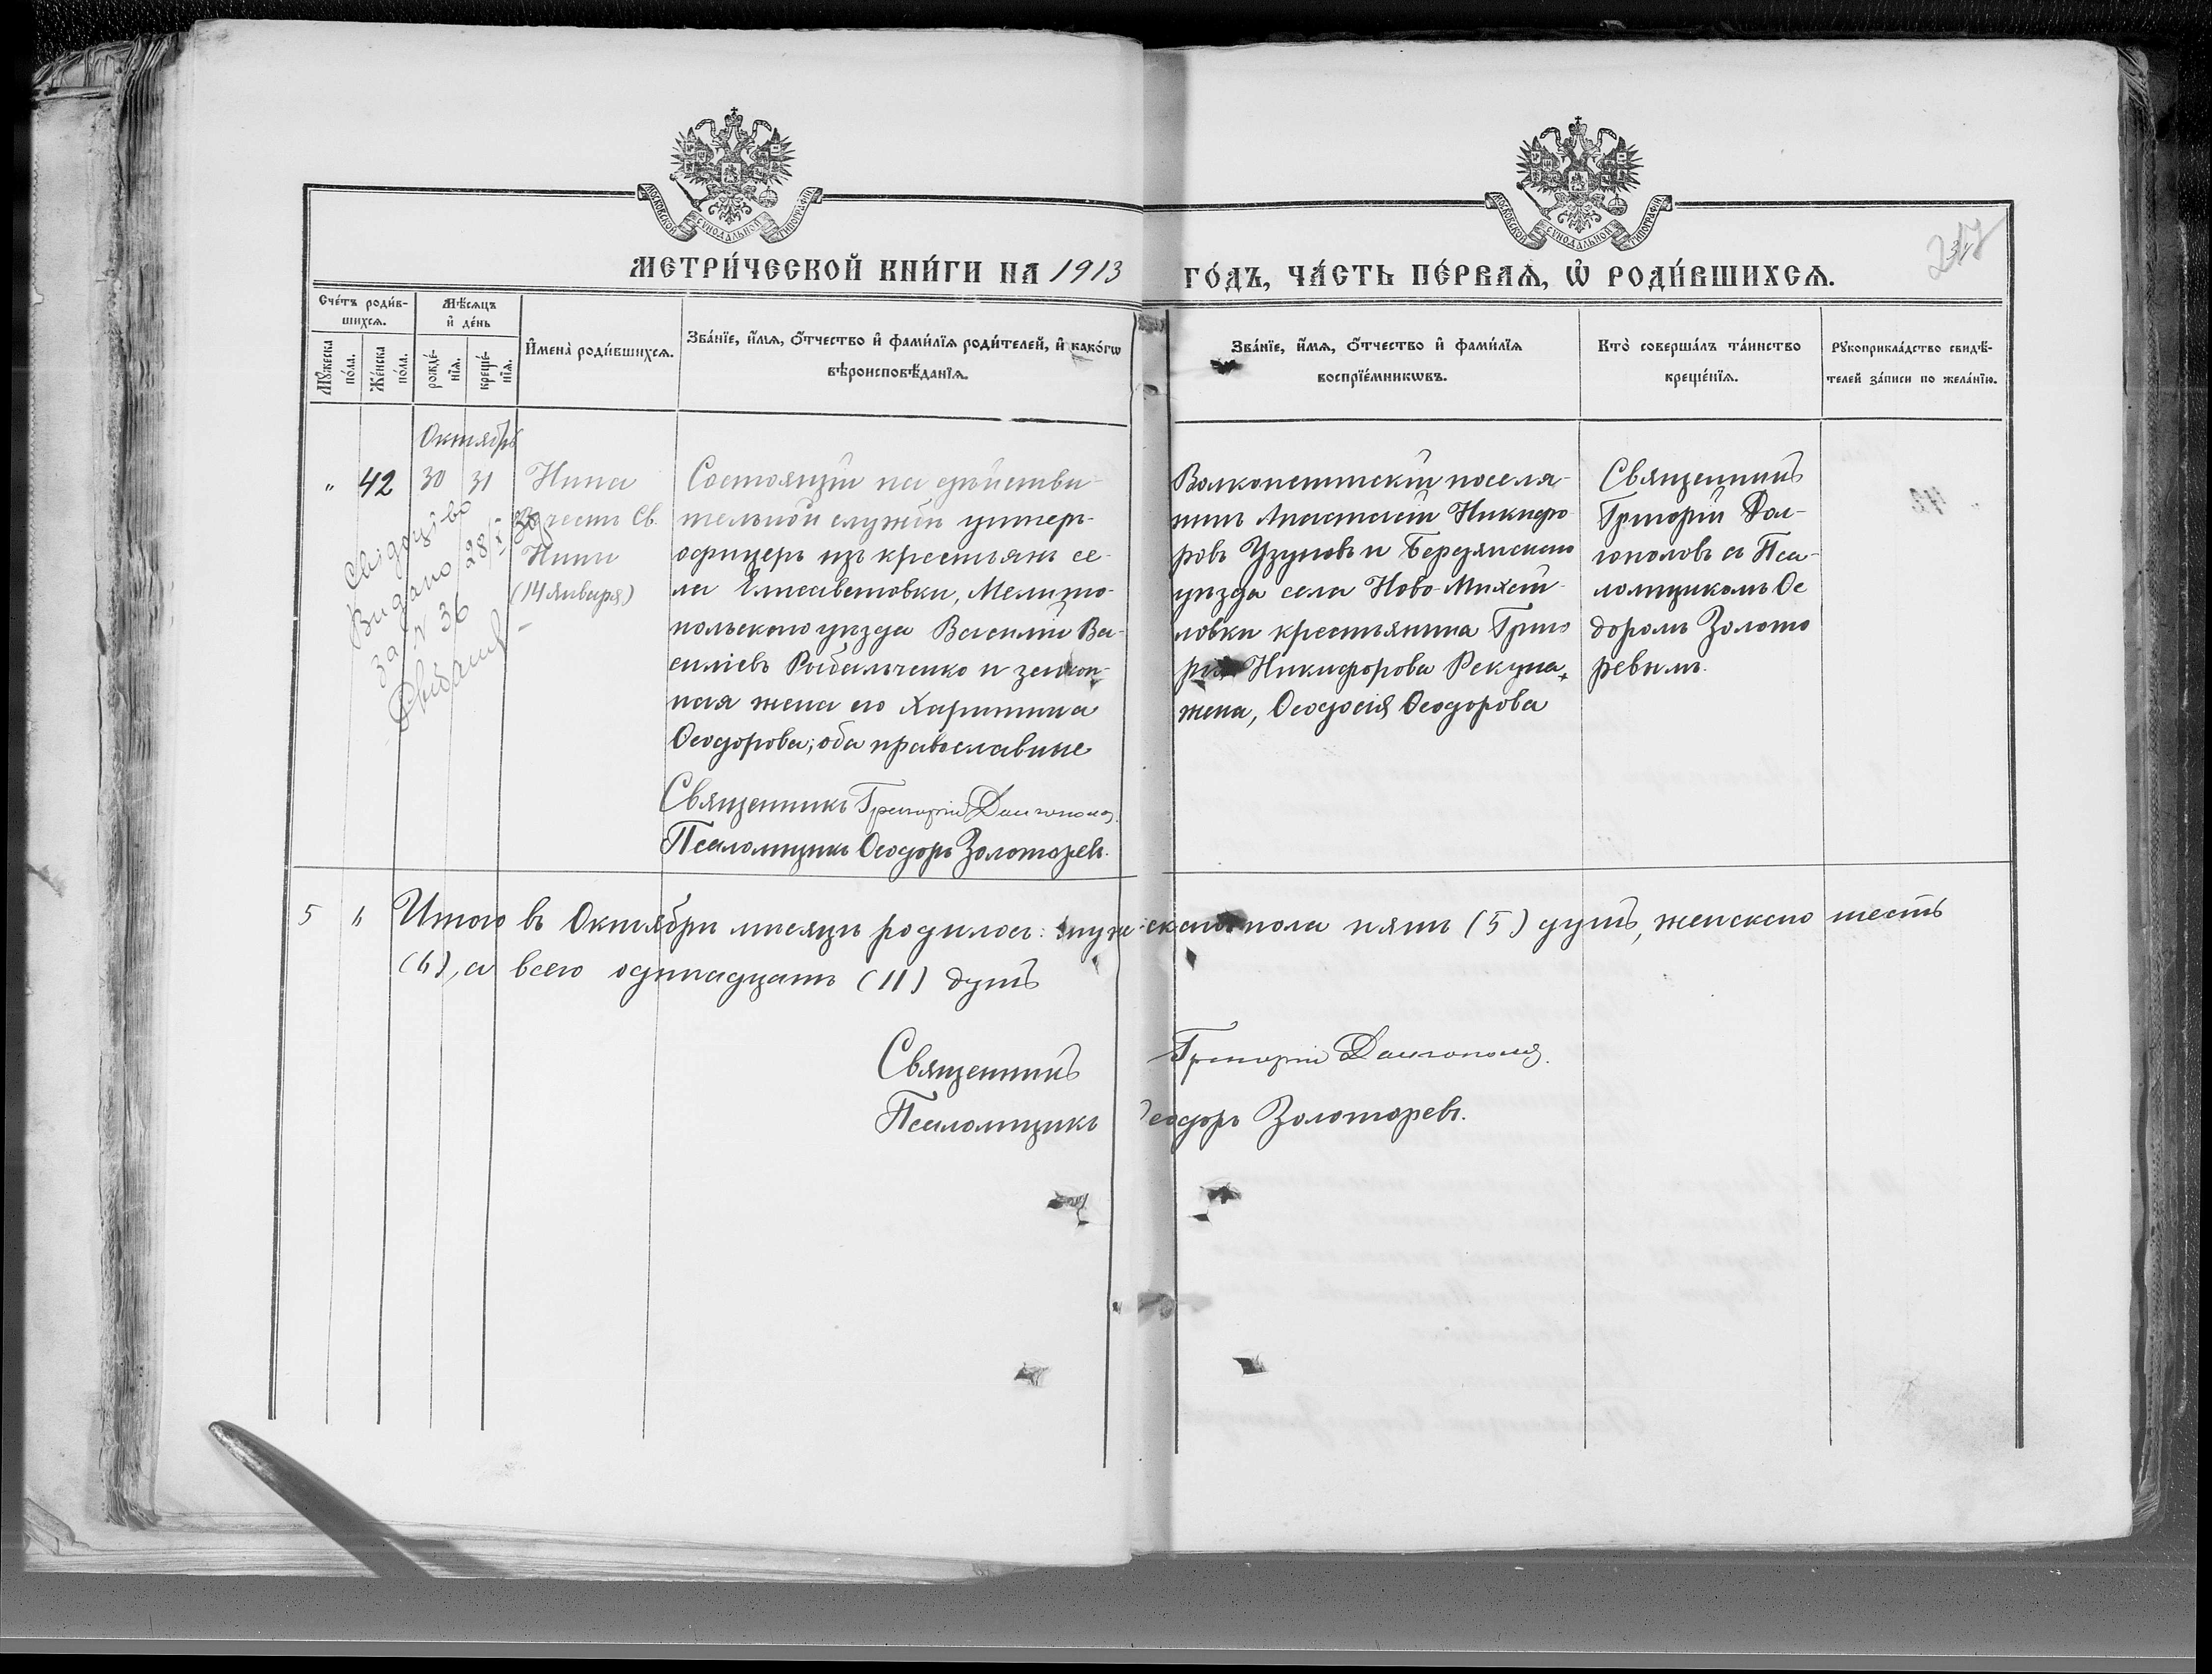 МОСКОВСКОЙ СѴНОДАЛЬНОЙ ТИПОГРАФІИ
МОСКОВСКОЙ СѴНОДАЛЬНОЙ ТИПОГРАФІИ
МЕТРИ́ЧЕСКОЙ КНИ́ГИ НА 1913 ГО́ДЪ, ЧА́СТЬ ПЕ́РВАѦ, Ѡ҆ РОДИ́ВШИХСѦ.
Сче́тъ роди́в-
шихсѧ.
Мꙋ́жеска
по́ла.
Же́нска
по́ла.
Мѣ́сѧцъ
и҆ де́нь
рожде́-
нїѧ.
креще́-
нїѧ.
И҆мена̀ роди́вшихсѧ.
Зва́нїе, и҆́мѧ, ѻ҆́тчество и҆ фами́лїѧ роди́телей, и҆ како́гѡ
вѣроисповѣ́данїѧ.
Зва́нїе, и҆́мѧ, ѻ҆́тчество и҆ фами́лїѧ
воспрїе́мникѡвъ.
Кто̀ соверша́лъ та́инство
креще́нїѧ.
Рꙋкоприкла́дство свидѣ́-
телей за́писи по жела́нїю.
Октябрь
" 42 30 31
Нина
Въ честь Св.
Нины
(14 Января)
Свідоцтво
Видано 28/I
за № 36
Состоящій на дѣйстви-
тельной службѣ унтеръ-
офицеръ изъ крестьянъ се-
ла Елисаветовки, Мелито-
польскаго уѣзда Василій Ва-
силіевъ Рыбальченко и закон-
ная жена его Харитина
Ѳеодорова; оба православные
Священникъ Григорій Долгополов.
Псаломщикъ Ѳеодоръ Золотарев.
Волконештскій поселя-
нинъ Анастасій Никифо-
ровъ Узуновъ и Бердянскаго
уѣзда села Ново-Михай-
ловки крестьянина Григо
рія Никифорова Рекуна,
жена, Ѳеодосія Ѳеодорова
Священникъ
Григорій Дол-
гополовъ съ Пса-
ломщикомъ Ѳе
доромъ Золото
ревымъ.
5 6 Итого въ Октябрѣ мѣсяцѣ родилось: мужескаго пола пять (5) душъ, женскаго шесть
(6), а всего одинадцать (11) душъ
Священникъ Григорій Долгополов.
Псаломщикъ Ѳеодоръ Золотарев.